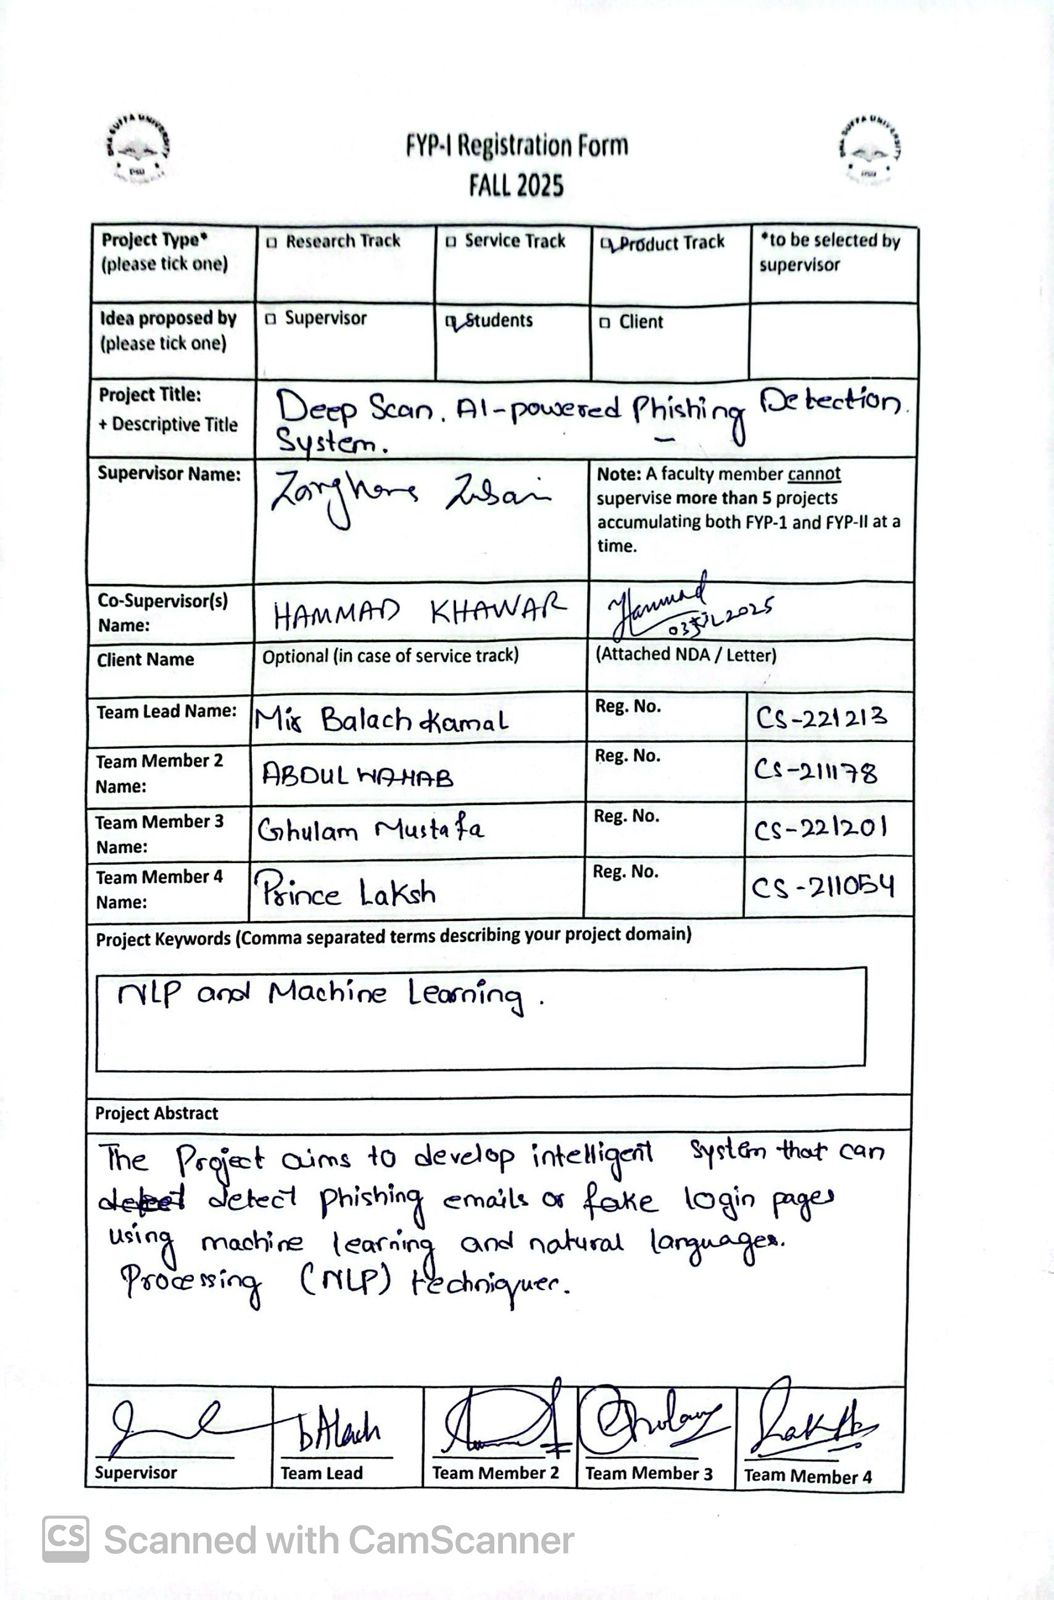 DHA SUFFA UNIVERSITY
DSU
FYP-I Registration Form
FALL 2025
DHA SUFFA UNIVERSITY
DSU
Project Type*
(please tick one)
Research Track
Service Track
Product Track
*to be selected by
supervisor
Idea proposed by
(please tick one)
Supervisor
Students
Client
Project Title:
+ Descriptive Title
Deep Scan. AI-powered Phishing Detection.
System.
Supervisor Name:
Note: A faculty member cannot
supervise more than 5 projects
accumulating both FYP-1 and FYP-II at a
time.
Co-Supervisor(s)
Name:
HAMMAD KHAWAR
Hammad
03 JUL 2025
Client Name
Optional (in case of service track)
(Attached NDA / Letter)
Team Lead Name:
Mir Balach Kamal
Reg. No.
CS-221213
Team Member 2
Name:
ABDUL WAHAB
Reg. No.
CS-211178
Team Member 3
Name:
Ghulam Mustafa
Reg. No.
CS-221201
Team Member 4
Name:
Prince Laksh
Reg. No.
CS-211054
Project Keywords (Comma separated terms describing your project domain)
NLP and Machine Learning.
Project Abstract
The Project aims to develop intelligent system that can
detect phishing emails or fake login pages
using machine learning and natural languages.
Processing (NLP) techniques.
bAlach
Supervisor
Team Lead
Team Member 2
Team Member 3
Team Member 4
CS Scanned with CamScanner